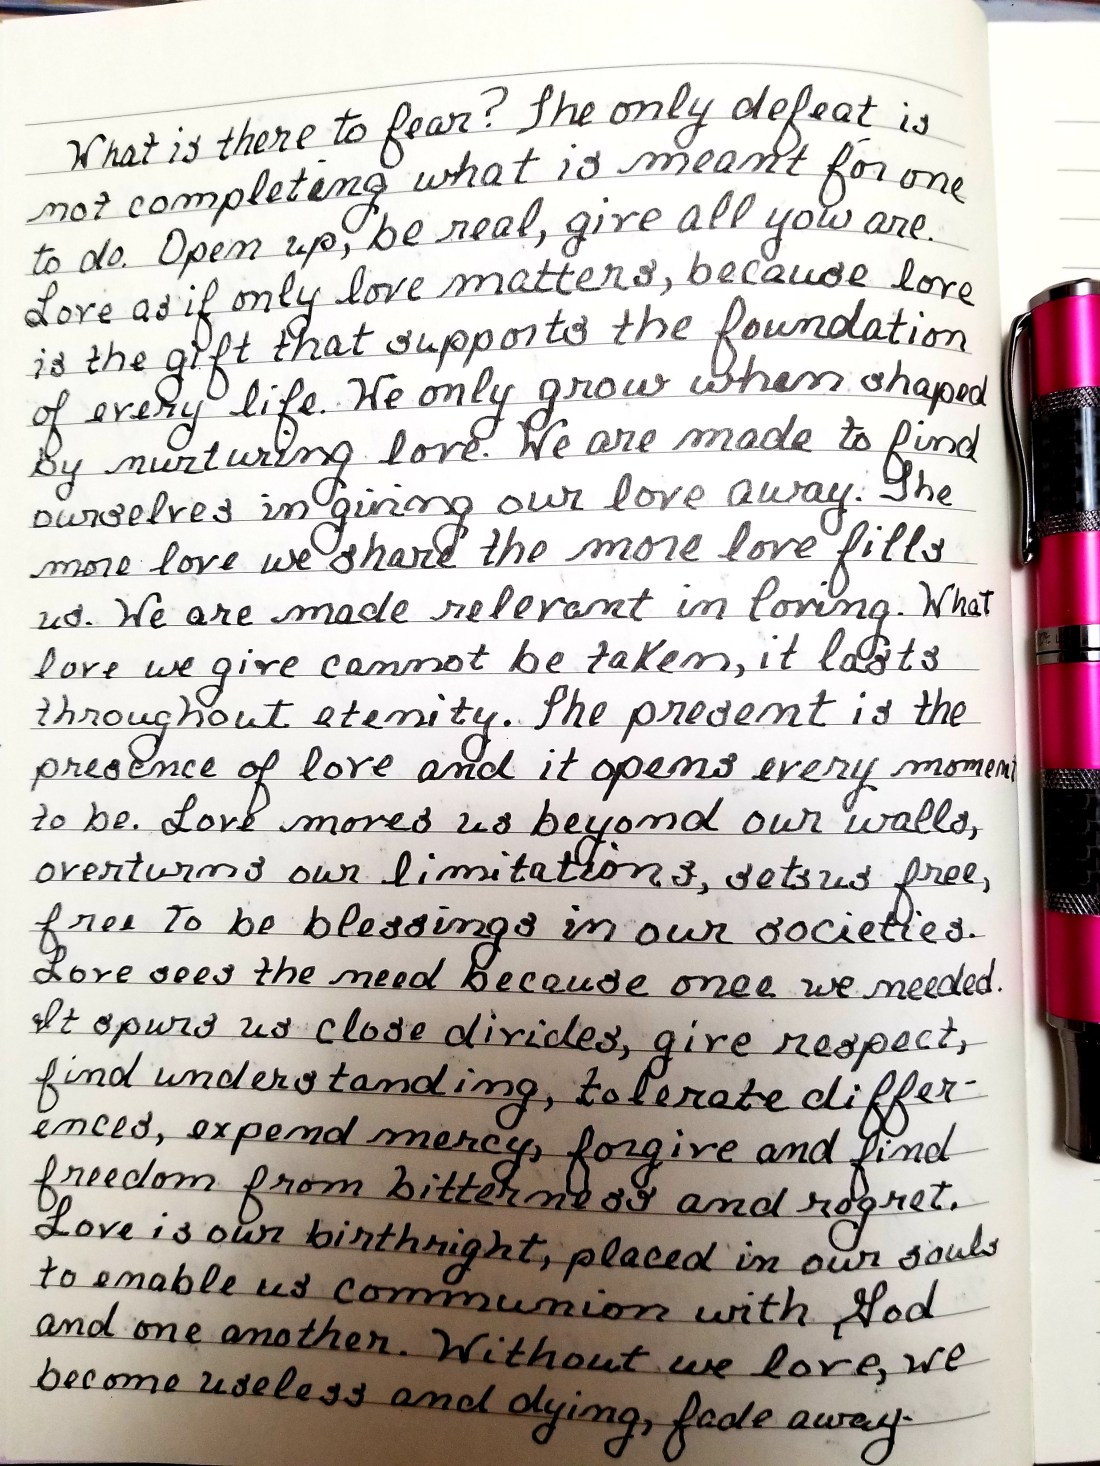 What is there to fear? The only defeat is
not completing what is meant for one
to do. Open up, be real, give all you are.
Love as if only love matters, because love
is the gift that supports the foundation
of every life. We only grow when shaped
by nurturing love. We are made to find
ourselves in giving our love away. The
more love we share the more love fills
us. We are made relevant in loving. What
love we give cannot be taken, it lasts
throughout eternity. The present is the
presence of love and it opens every moment
to be. Love moves us beyond our walls,
overturns our limitations, sets us free,
free to be blessings in our societies.
Love sees the need because once we needed.
It spurs us close divides, give respect,
find understanding, tolerate differ-
ences, expend mercy, forgive and find
freedom from bitterness and regret.
Love is our birthright, placed in our souls
to enable us communion with God
and one another. Without we love, we
become useless and dying, fade away.